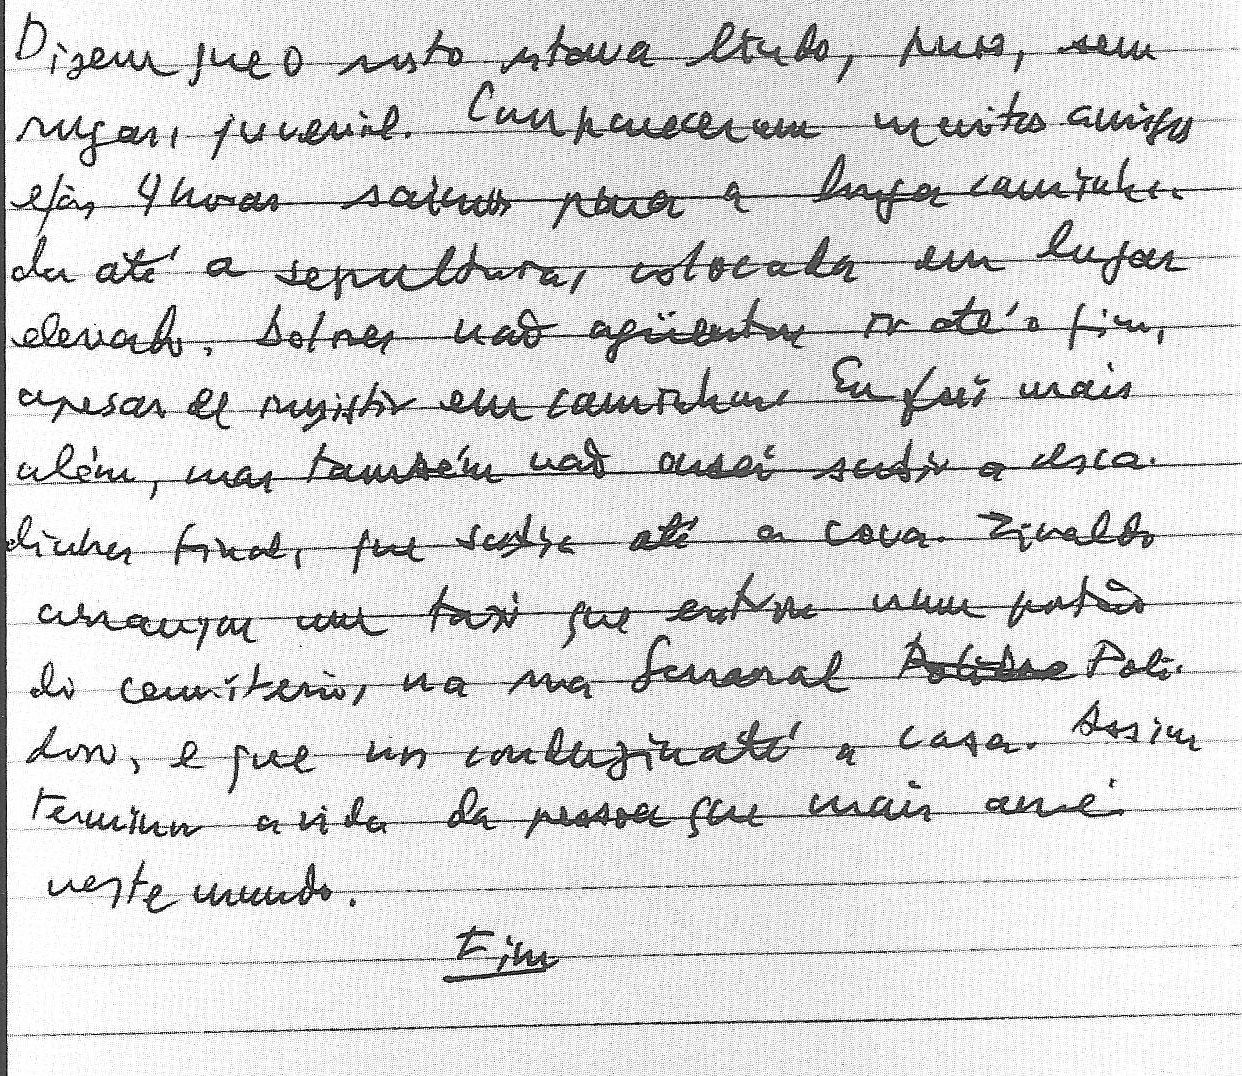 Dizem que o rosto estava lindo, puro, sem
rugas, juvenil. Compareceram muitos amigos
e às 4 horas saímos para a longa caminha-
da até a sepultura, colocada em lugar
elevado. Dolores não agüentou ir até o fim,
apesar de insistir em caminhar. Eu fui mais
além, mas também não ousei subir a esca-
dinha final, que subia até a cova. Zivaldo
arranjou um taxi que entrou num portão
do cemitério, na rua General Poli-
doro, e que nos conduziu até a casa. Assim
terminou a vida da pessoa que mais amei
neste mundo.
Fim